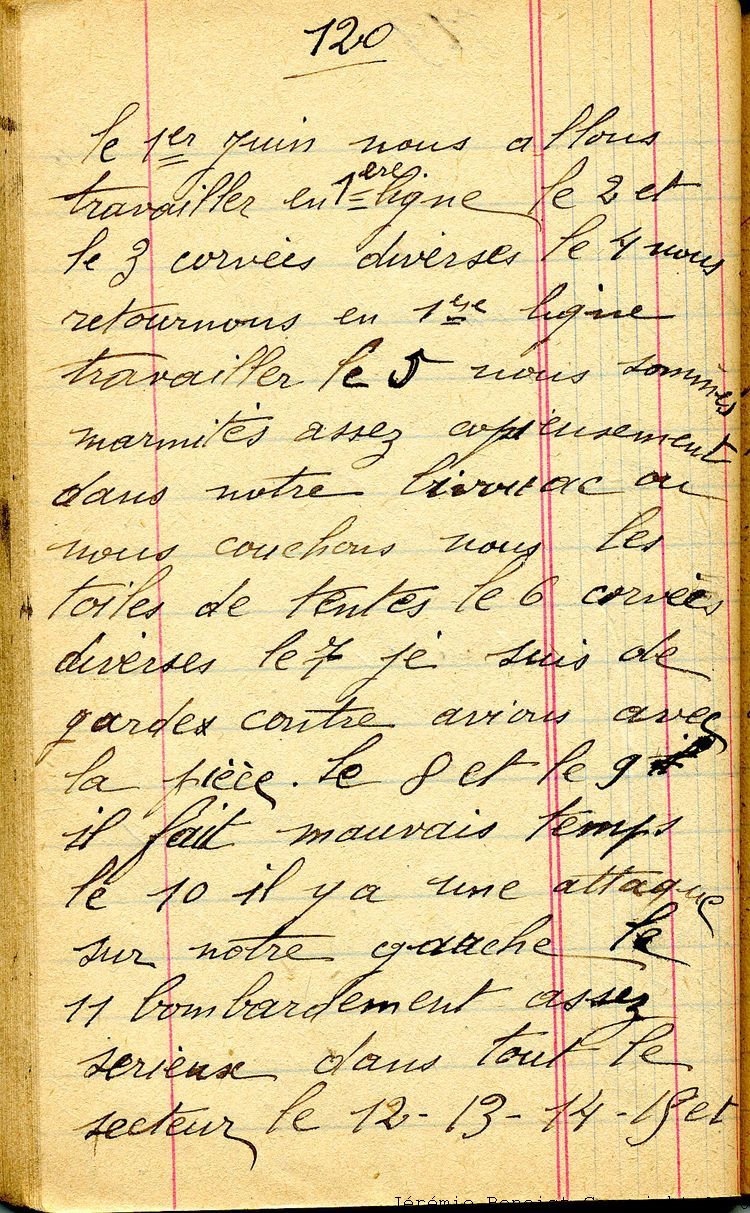 120
le 1er juin nous allons
travailler en 1ère ligne le 2 et
le 3 corvées diverses le 4 nous
retournons en 1ere ligne
travailler le 5 nous sommes
marmités assez copieusement
dans notre bivouac ou
nous couchons nous les
toiles de tentes le 6 corvées
diverses le 7 je suis de
garde contre avions avec
la pièce. Le 8 et le 9
il fait mauvais temps
le 10 il y a une attaque
sur notre gauche le
11 bombardement assez
serieux dans tout le
secteur le 12 - 13 - 14 - 15 et